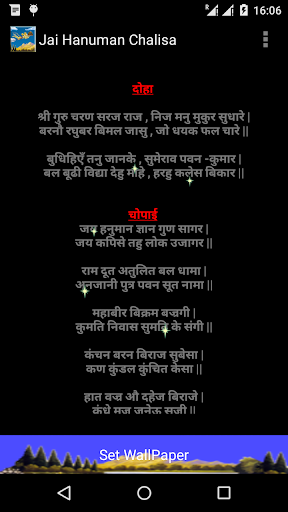 16:06
Jai Hanuman Chalisa
दोहा
श्री गुरु चरण सरज राज , निज मनु मुकुर सुधारे |
बरनौ रघुबर बिमल जासु , जो धयक फल चारे ||
बुधिहिएँ तनु जानके , सुमेराव पवन -कुमार |
बल बूढी विद्या देहु मोहे , हरहु कलेस बिकार ||
चोपाई
जय हनुमान ज्ञान गुण सागर |
जय कपिसे तहु लोक उजागर ||
राम दूत अतुलित बल धामा |
अनजानी पुत्र पवन सूत नामा ||
महाबीर बिक्रम बज्रगी |
कुमति निवास सुमति के संगी ||
कंचन बरन बिराज सुबेसा |
कण कुंडल कुंचित केसा ||
हात वज्र औ दहेज बिराजे |
कंधे मुज जनेऊ सजी ||
Set WallPaper